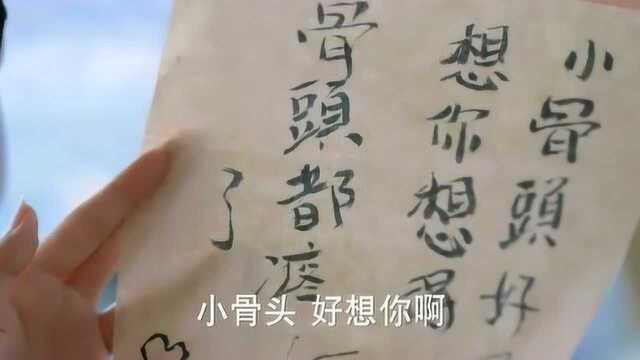 小骨頭好
想你想得
骨頭都疼
了
小骨头 好想你啊